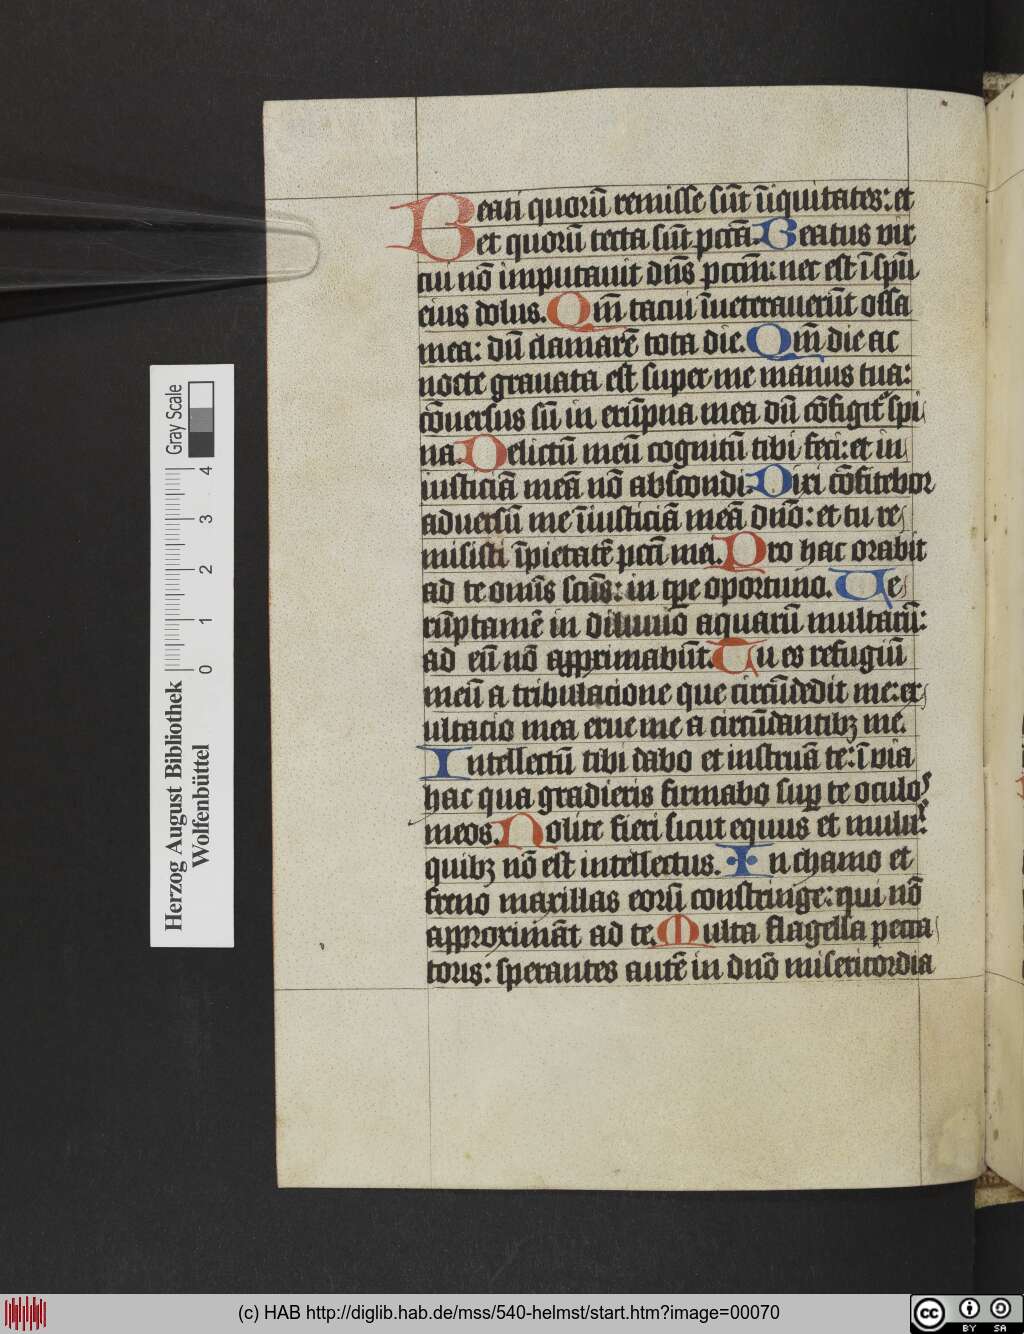 Beati quorū remisse sūt īiquitates: et
et quorū tecta sūt pctā. Beatus vir
cui nō imputauit dn̄s pctm̄: nec est ī spū
eius dolus. Qm̄ tacui īueterauerūt ossa
mea: dū clamarē tota die. Qm̄ die ac
nocte grauata est super me manus tua:
cōuersus sū in erūpna mea dū cōfigit̉ spi
na. Delictū meū cognitū tibi feci: et in
iusticiā meā nō abscondi. Dixi cōfitebor
aduersū me īiusticiā meā dnō: et tu re
misisti īpietatē pcti mei. Pro hac orabit
ad te omīs scūs: in tꝑe oportuno. Ve
rūptamē in diluuio aquarū multarū:
ad eū nō apprximabūt. Tu es refugiū
meū a tribulacione que circūdedit me: ex
ultacio mea erue me a circūdantibꝫ me.
Intellectū tibi dabo et instruā te: ī via
hac qua gradieris firmabo suꝑ te oculos
meos. Nolite fieri sicut equus et mulus:
quibꝫ nō est intellectus. In chamo et
freno maxillas eorū constringe: qui nō
approximāt ad te. Multa flagella pecca
toris: sperantes autē in dnō misericordia
Herzog August Bibliothek
Wolfenbüttel
0 1 2 3 4
Gray Scale
(c) HAB http://diglib.hab.de/mss/540-helmst/start.htm?image=00070
cc BY SA